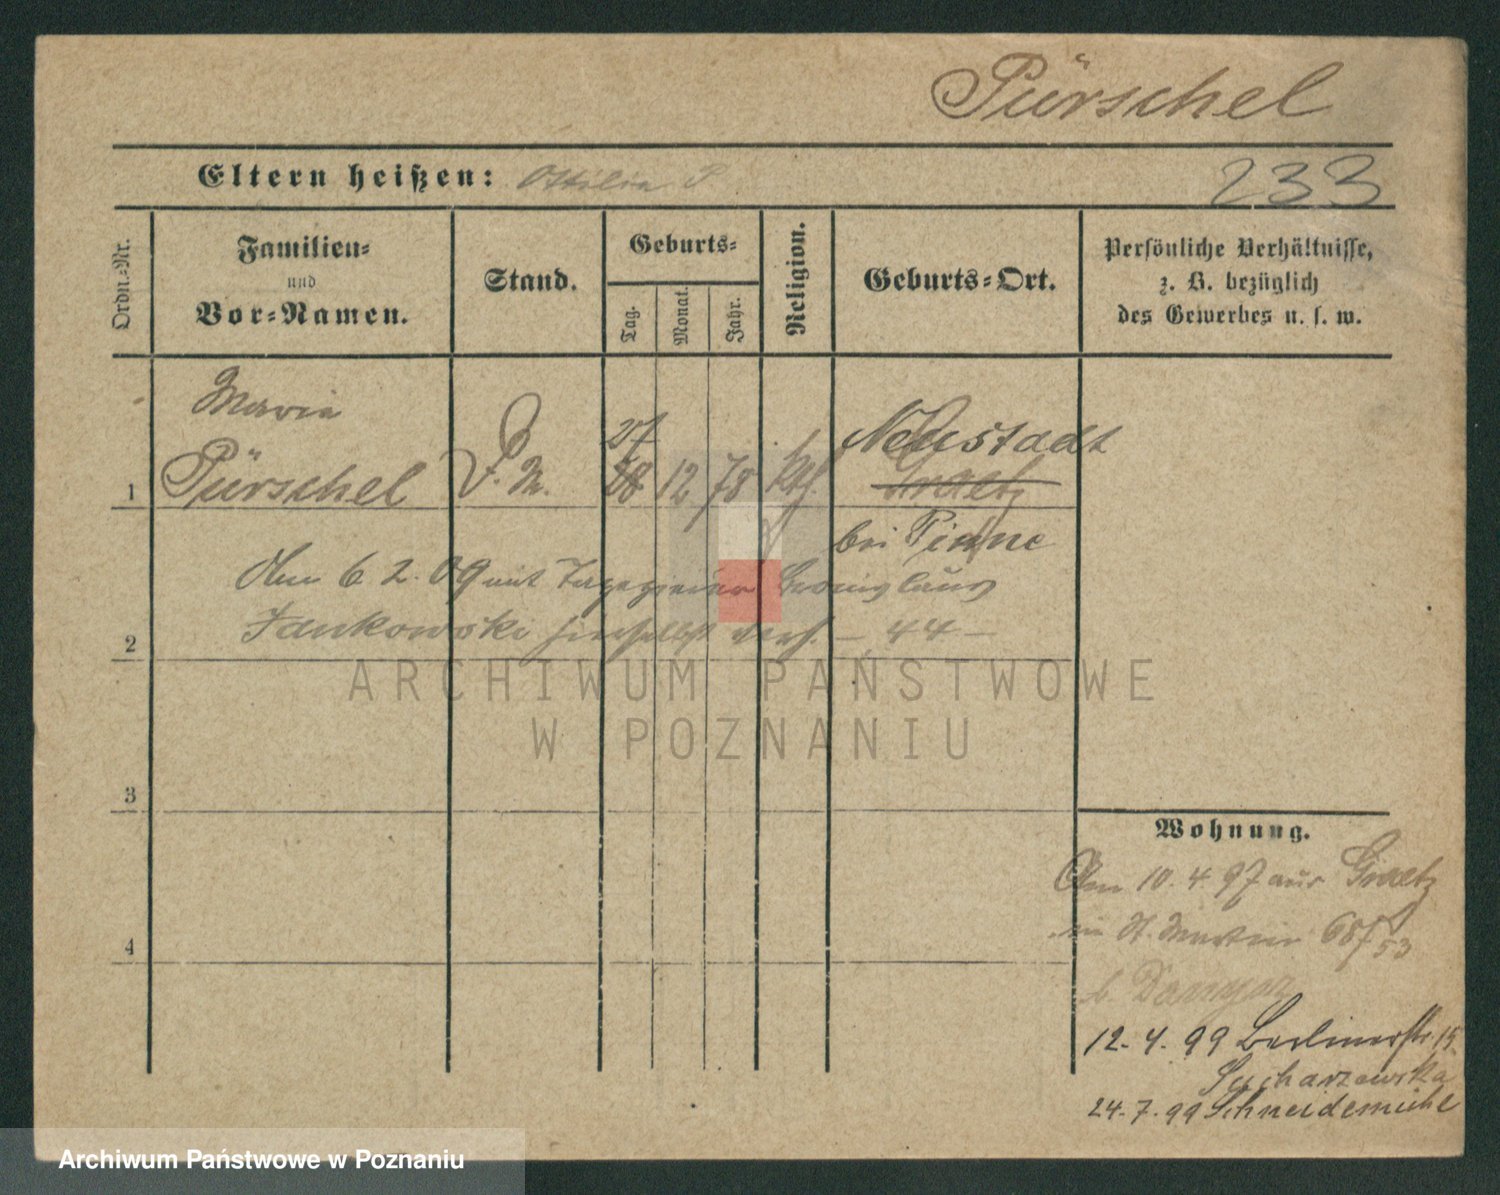 Pürschel
Eltern heißen: Ottilie P
233
Ordn.-Nr.
Familien-
und
Vor-Namen.
Stand.
Geburts-
Tag.
Monat.
Jahr.
Religion.
Geburts-Ort.
Persönliche Verhältnisse,
z. B. bezüglich
des Gewerbes u. s. w.
Maria
1 Pürschel
27
28 12 78 kth.
Neustadt
Graetz
bei Pinne
Am 6 2. 09 mit
2 Jankowski hierselbst verh. — 44 —
3
4
Wohnung.
Am 10. 4. 97 aus Graetz
in St. Martin 68/53
b.
12. 4. 99 Berlinerstr 15
Sucharzewska
24. 7. 99 Schneidemühl
ARCHIWUM PAŃSTWOWE
W POZNANIU
Archiwum Państwowe w Poznaniu